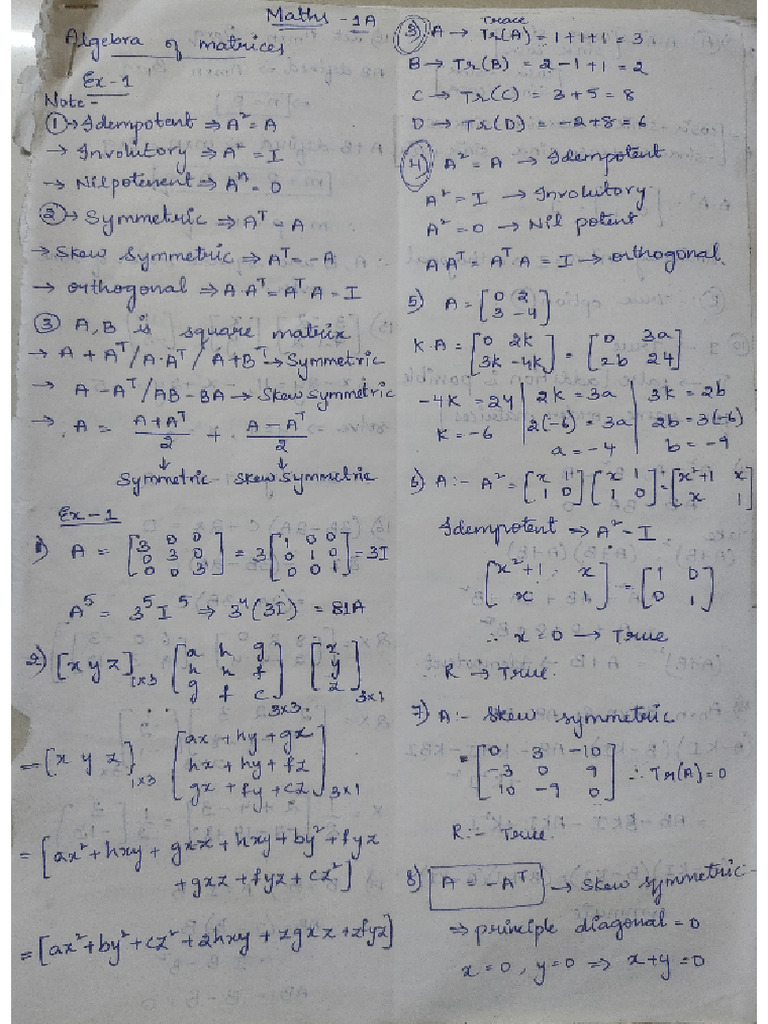 Maths - 1A
Algebra of matrices
Ex-1
Note -
① → Idempotent ⇒ A² = A
→ Involutory ⇒ A² = I
→ Nilpotenent ⇒ Aⁿ = 0
② → Symmetric ⇒ Aᵀ = A
→ Skew Symmetric ⇒ Aᵀ = -A
→ Orthogonal ⇒ A Aᵀ = Aᵀ A = I
③ A, B is square matrix
→ A + Aᵀ / A·Aᵀ / A+Bᵀ → Symmetric
→ A - Aᵀ / AB - BA → Skew Symmetric
→ A = (A + Aᵀ)/2 + (A - Aᵀ)/2
↓ ↓
Symmetric Skew Symmetric
Ex-1
1) A = [3 0 0; 0 3 0; 0 0 3] = 3 [1 0 0; 0 1 0; 0 0 1] = 3I
A⁵ = 3⁵ I⁵ ⇒ 3⁴ (3I) = 81A
2) [x y z]₁ₓ₃ [a h g; h h f; g f c]₃ₓ₃ [x; y; z]₃ₓ₁
= [x y z]₁ₓ₃ [ax + hy + gx; hx + hy + fz; gx + fy + cz]₃ₓ₁
= [ax² + hxy + gxz + hxy + by² + fyz
+ gxz + fyz + cz²]
= [ax² + by² + cz² + 2hxy + zgxz + zfyz]
3) A → Trace Tr(A) = 1+1+1 = 3
B → Tr(B) = 2-1+1 = 2
C → Tr(C) = 3+5 = 8
D → Tr(D) = -2+8 = 6
4) A² = A → Idempotent
A² = I → Involutory
A² = 0 → Nil potent
A Aᵀ = Aᵀ A = I → orthogonal.
5) A = [0 2; 3 -4]
K·A = [0 2k; 3k -4k] = [0 3a; 2b 24]
-4k = 24 | 2k = 3a | 3k = 2b
k = -6 | 2(-6) = 3a | 2b = 3(-6)
a = -4 | b = -9
6) A :- A² = [x 1; 1 0] [x 1; 1 0] = [x²+1 x; x 1]
Idempotent ⇒ A² - I.
[x²+1 x; x 1] = [1 0; 0 1]
∴ x = 0 → True
R → True.
7) A :- Skew symmetric
= [0 3 -10; -3 0 9; 10 -9 0] ∴ Tr(A) = 0
R :- True.
8) A = -Aᵀ → Skew symmetric.
⇒ principle diagonal = 0
x = 0, y = 0 ⇒ x + y = 0